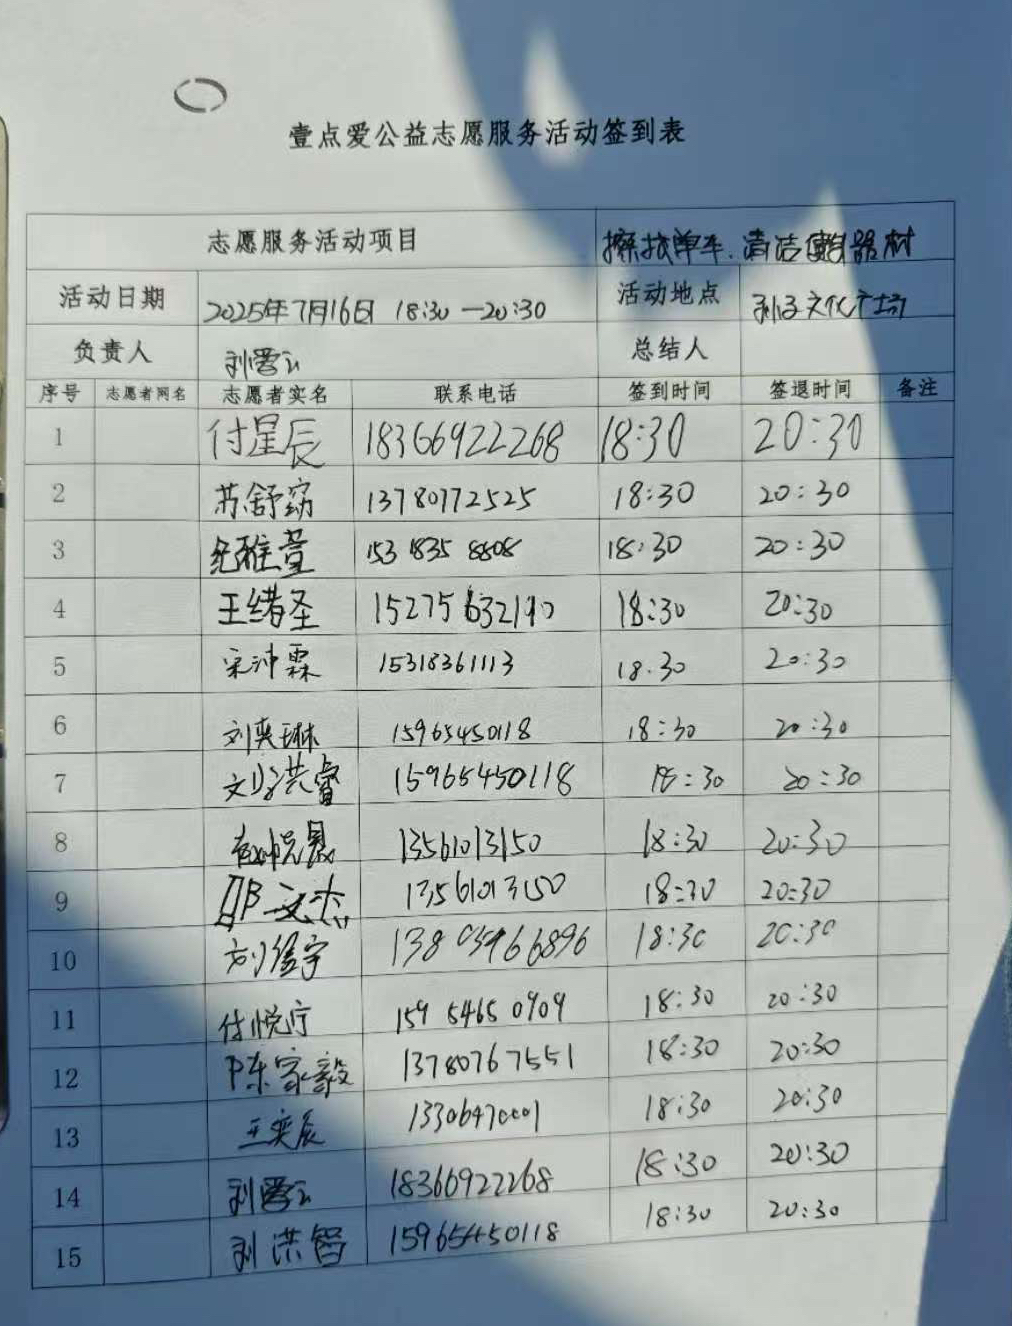 壹点爱公益志愿服务活动签到表
志愿服务活动项目 擦拭单车.清洁健身器材
活动日期 2025年7月16日 18:30—20:30 活动地点 孙子文化广场
负责人 刘爱云 总结人
序号 志愿者网名 志愿者实名 联系电话 签到时间 签退时间 备注
1 付星辰 18366922268 18:30 20:30
2 苏舒窈 13780772525 18:30 20:30
3 纪雅萱 153 1835 8808 18:30 20:30
4 王绪圣 15275632190 18:30 20:30
5 宋沛霖 15318361113 18.30 20:30
6 刘奕琳 15965450118 18:30 20:30
7 刘洪睿 15965450118 18:30 20:30
8 13561013150 18:30 20:30
9 邵文杰 13561013150 18:30 20:30
10 18:30 20:30
11 付悦疗 159 5465 0909 18:30 20:30
12 陈家毅 13780767551 18:30 20:30
13 王奕辰 13306470001 18:30 20:30
14 刘爱云 18366922268 18:30 20:30
15 刘洪智 15965450118 18:30 20:30